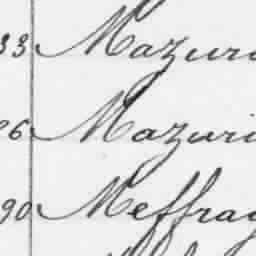 33 Mazuri
26 Mazuri
90 Meffray